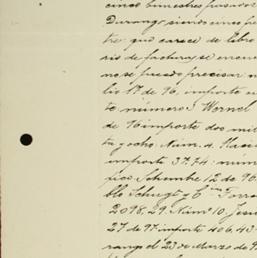 cinco bimestres pasados
Durango siendo cinco
tre que carece de libro
ris de factura, se encuen
no se pudo precisar
lio 17 de 96, importe
to número 3 Wornel
de 96 importe dos mil
ta y ocho. Núm. 4.
importe 37.74. núm
fico Setiembre 12 de 90
blo Schugt y Cía Torre
2098,29. Núm 10. José
27 de 97 importe 406.43
rango el 23 de Marzo de 9